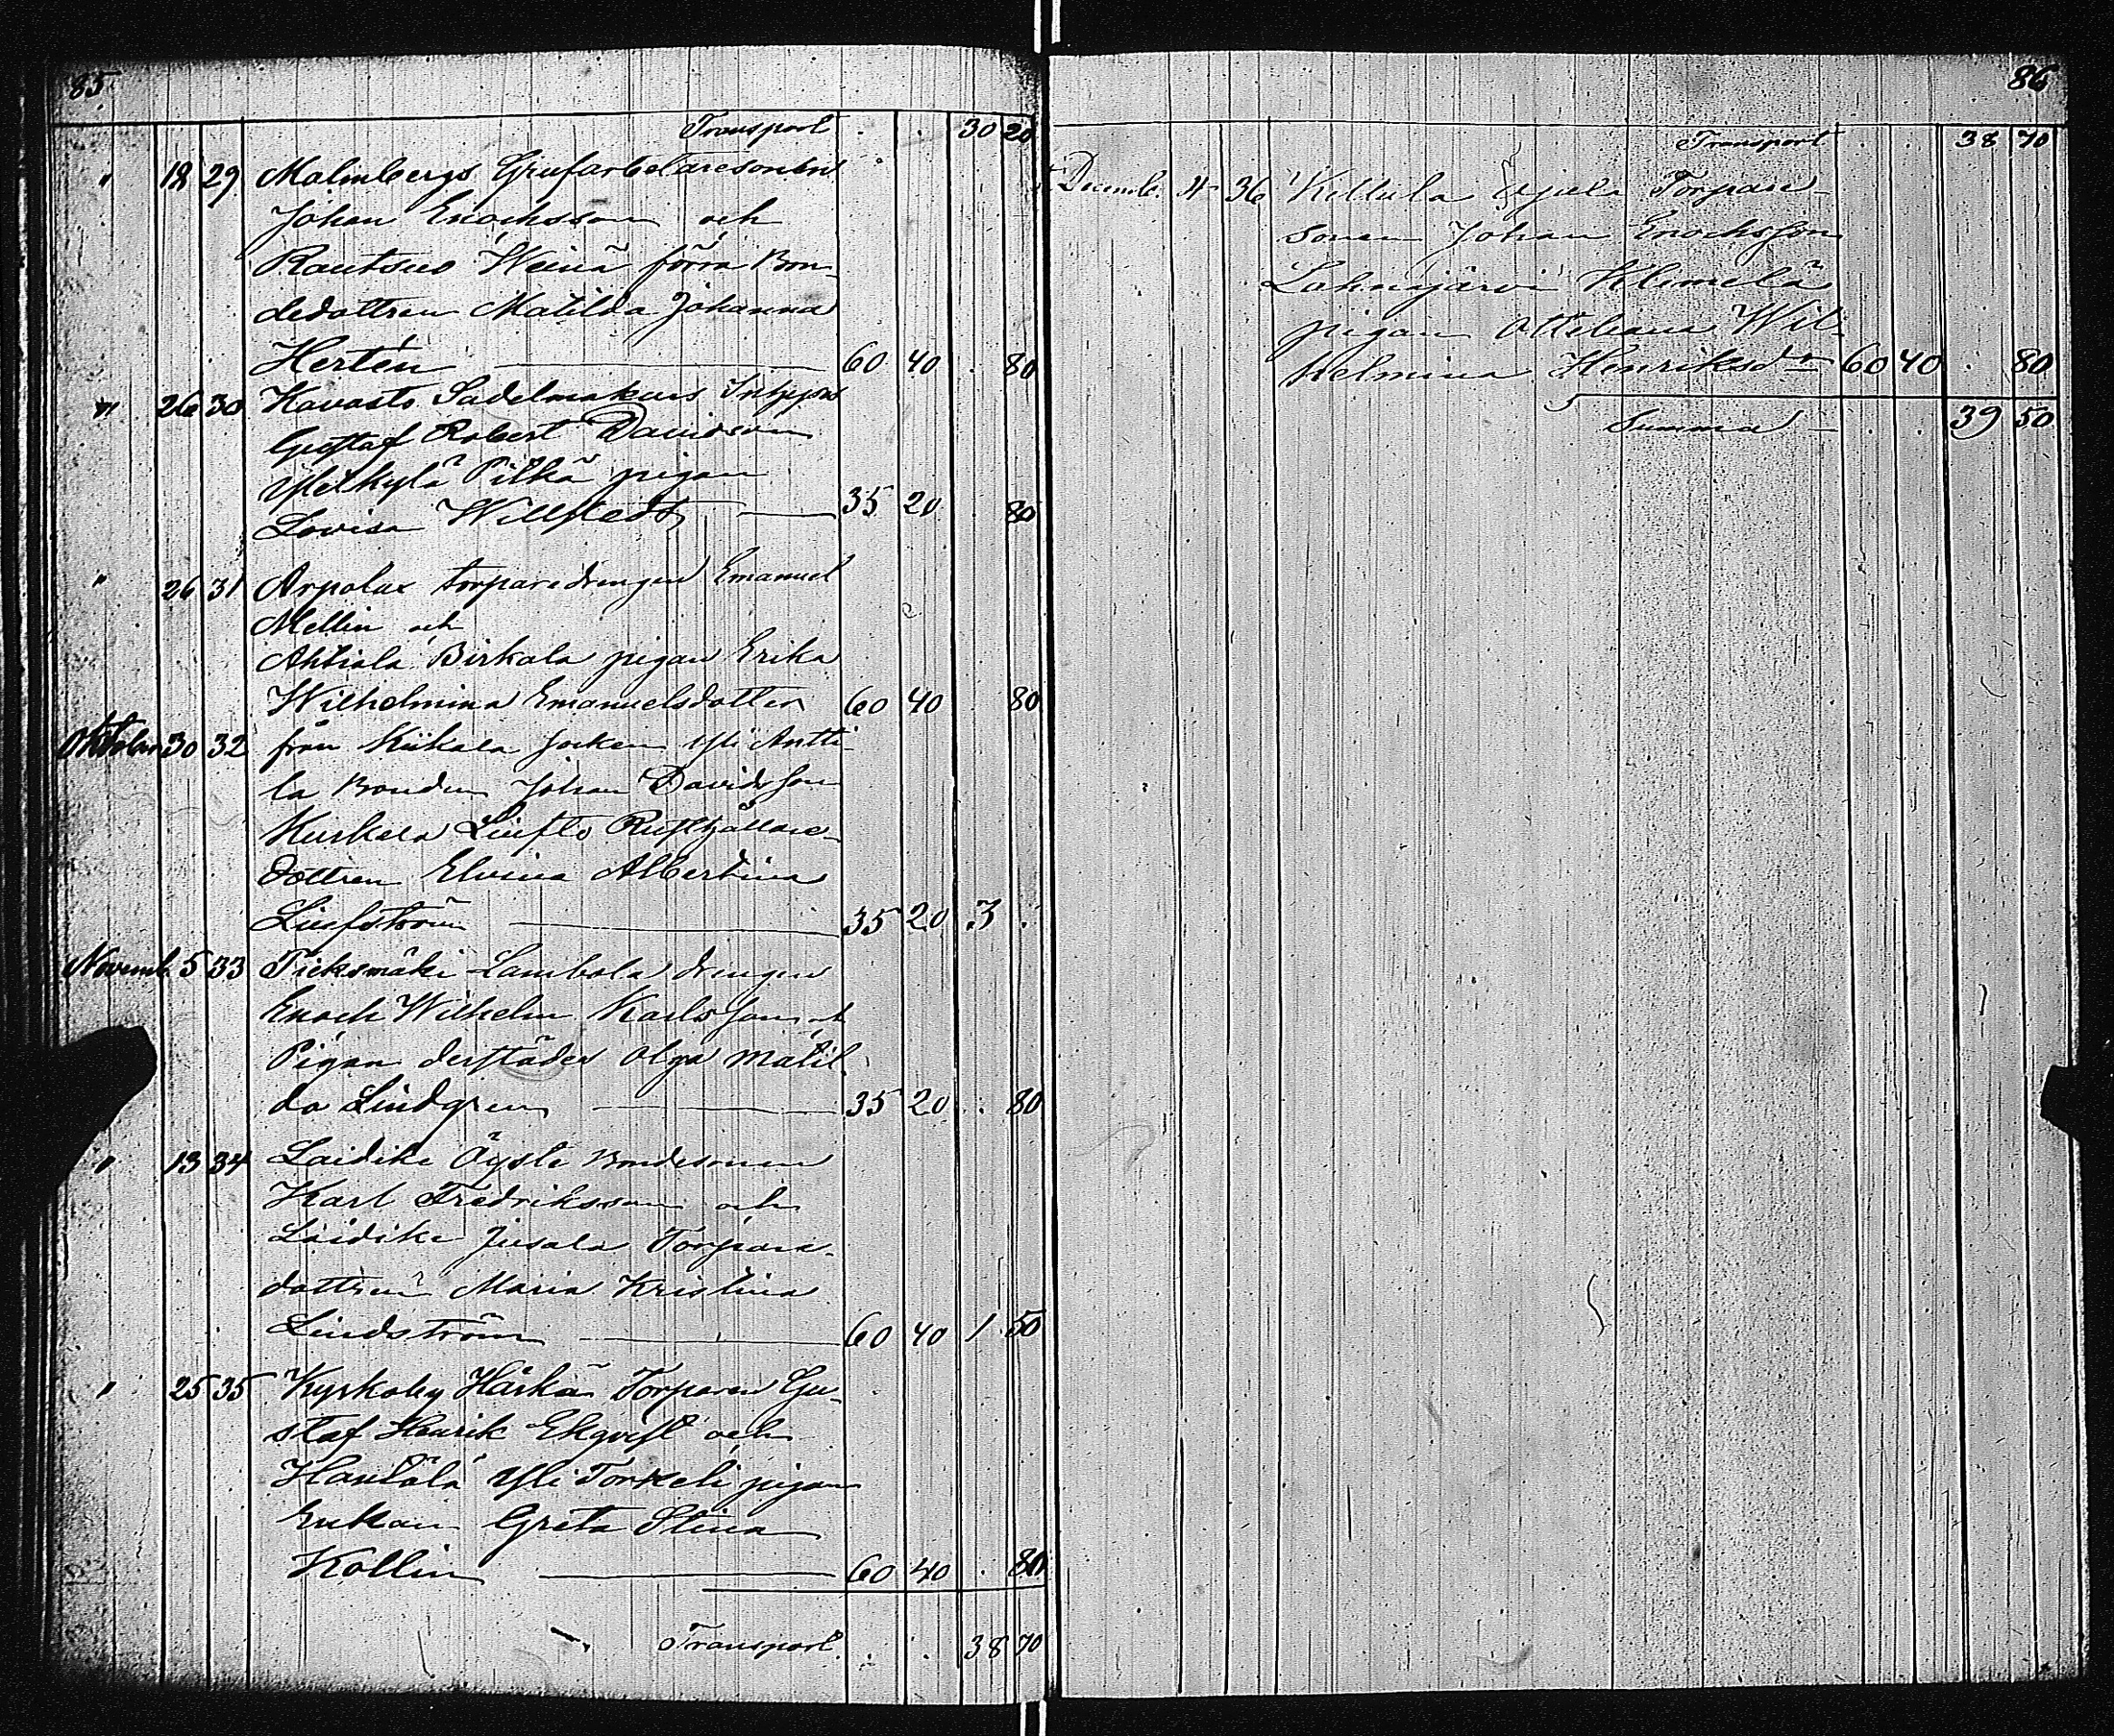 85
Transport . . 30 20
" 18 29 Malmbergs Grufarbetaresonen
Johan Enochsson och
Rautsuo Heinä förra Bon-
dedottren Matilda Johanna
Hertén 60 40 . 80
" 26 30 Kavasto Sadelmakars
Gustaf Robert Davidsson
Ylikylä Pilkä pigan
Lovisa Willstedt 35 20 80
" 26 31 Arpalax torparedrengen Emanuel
Mellin och
Ahtiala Birkala pigan Erika
Wilhelmina Emanuelsdotter 60 40 80
Oktober 30 32 från Kiikala Socken Yli Antti-
la Bonden Johan Davidsson
Kurkela Rusthållare-
dottren Elvina Albertina
35 20 3 .
Novemb. 5 33 Tieksmäki Lambola drengen
Enoch Wilhelm Karlsson och
Pigan derstädes Olga Matil-
da Lindgren 35 20 . 80
" 13 34 Laidike Äyste Bondesonen
Karl Fredriksson och
Laidike Jusala Torpare-
dottren Maria Kristina
Lindström 60 40 1 50
" 25 35 Kyrkoby Härkä Torparen Gu-
staf Henrik Ekqvist och
Hantala Yli Torkeli pigan
Enkan Greta Stina
Kollin 60 40 . 80
Transport . . 38 70
86
Transport . . 38 70
Decemb. 4 36 Kettula Torpare
sonen Johan Enochsson
Lahnajärvi
pigan Wil-
helmina Henriksdr 60 40 . 80
Summa . . 39 50